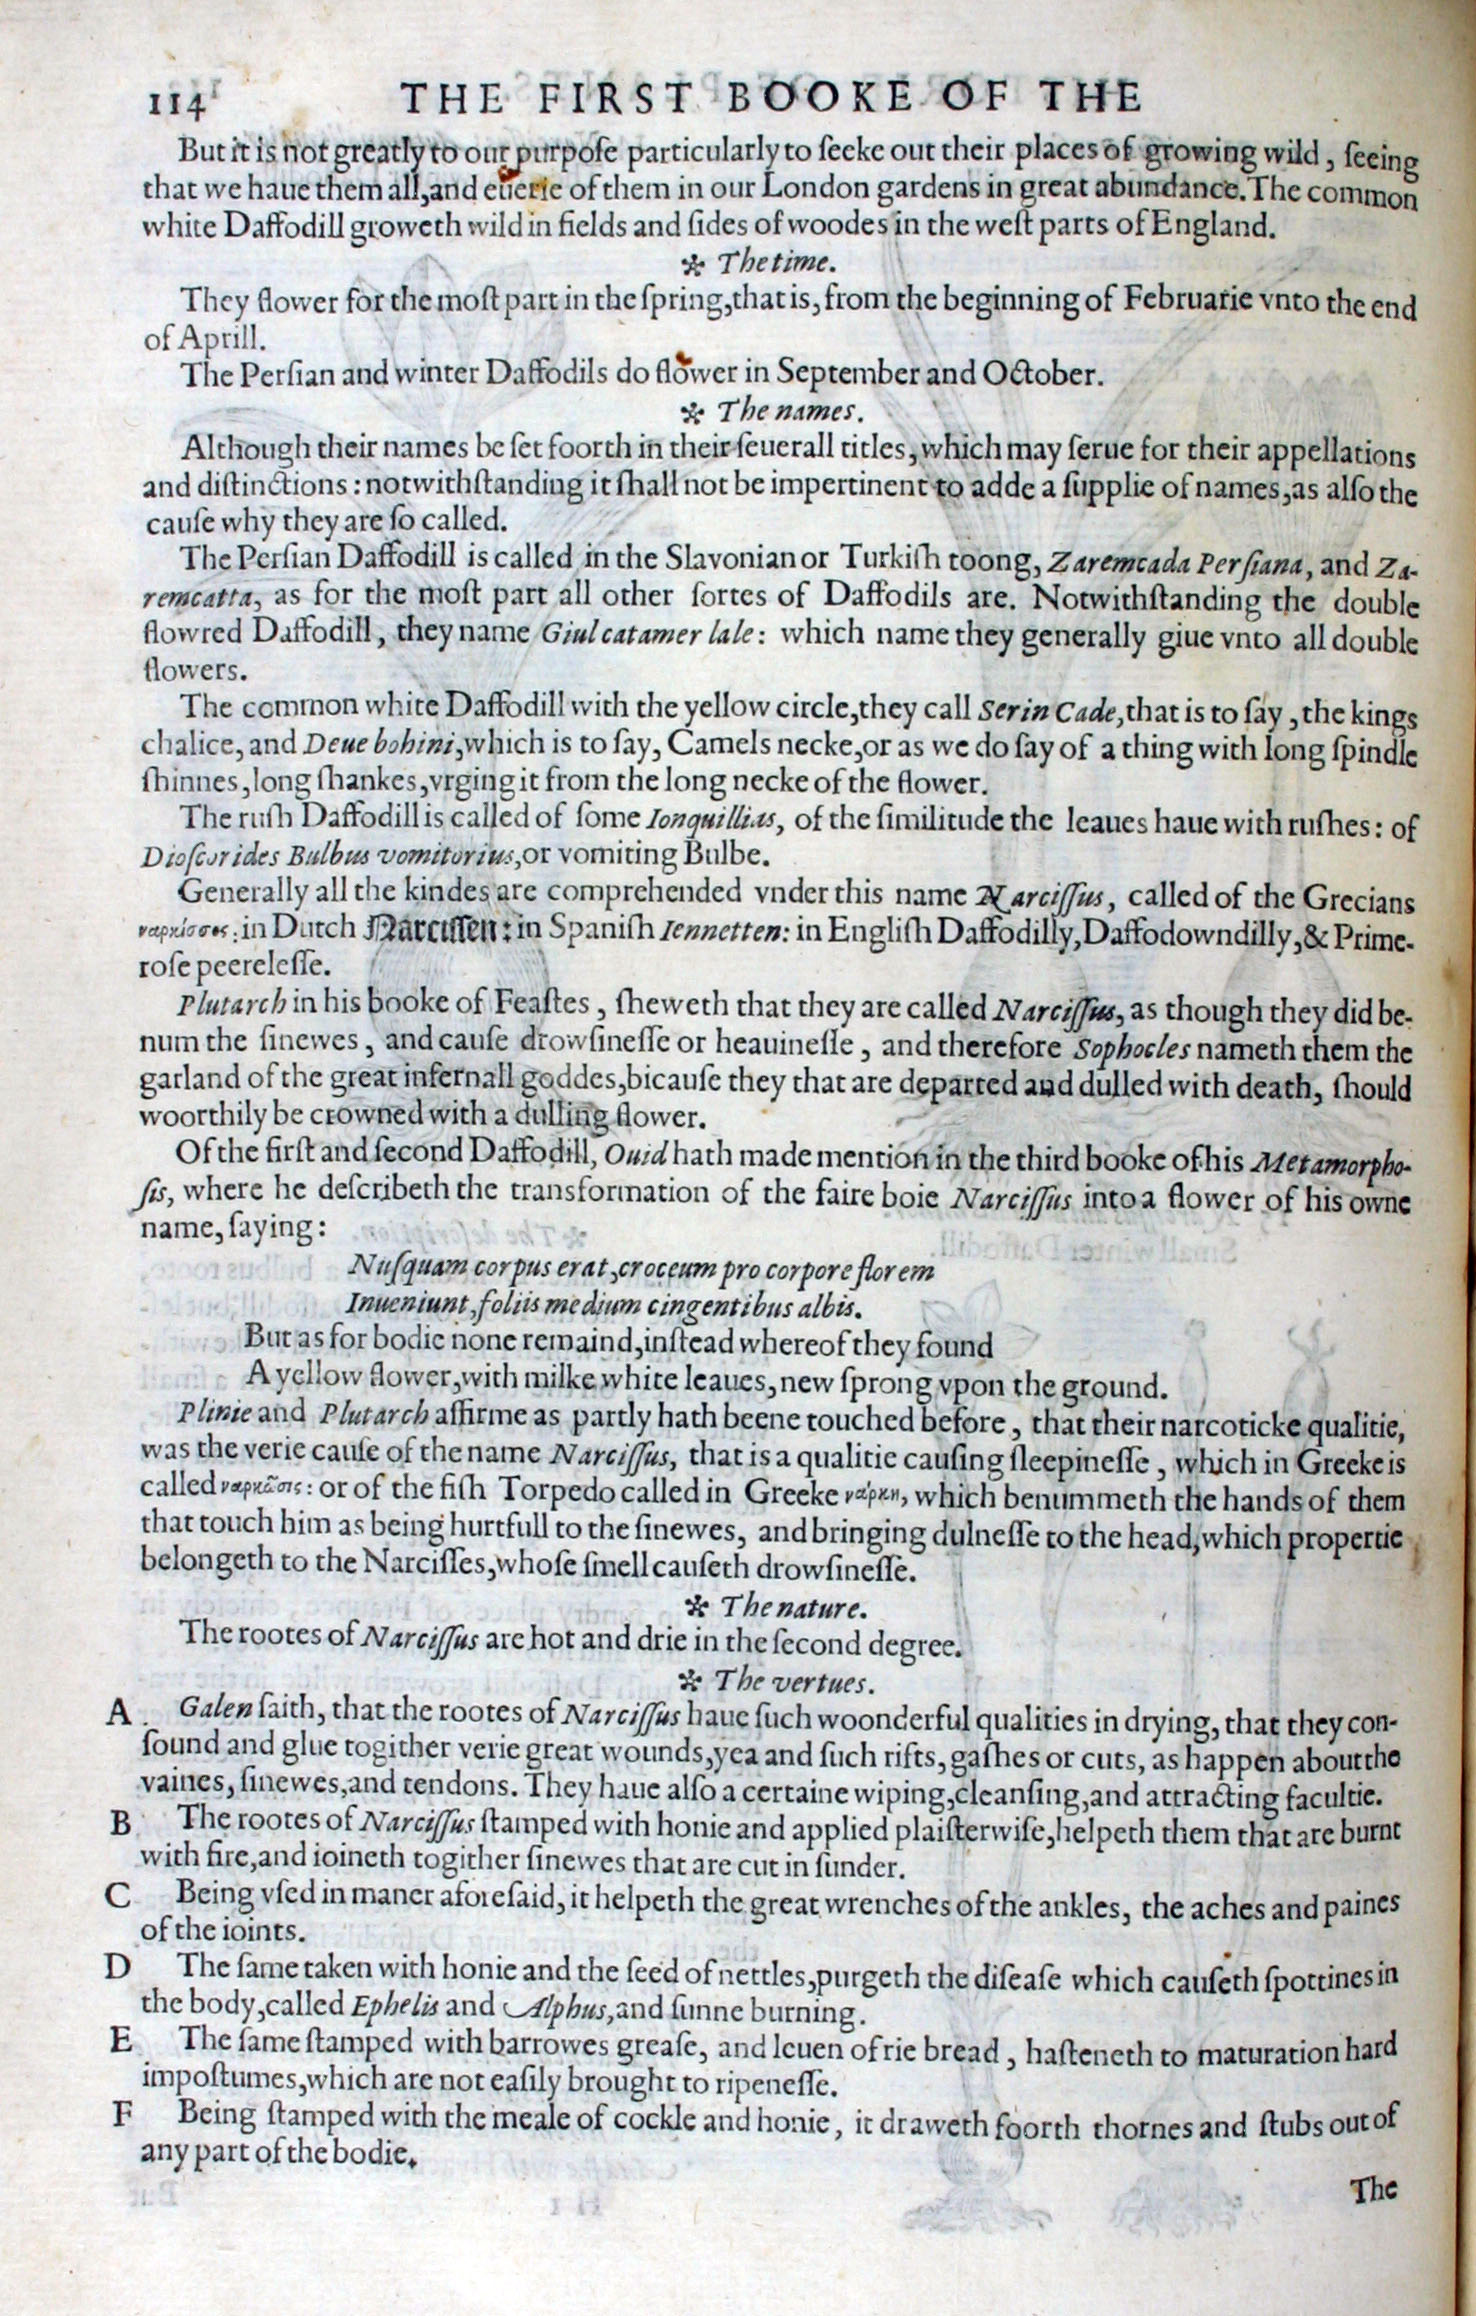 114 THE FIRST BOOKE OF THE
But it is not greatly to our purpoſe particularly to ſeeke out their places of growing wild, ſeeing
that we haue them all, and euerie of them in our London gardens in great abundance. The common
white Daffodill groweth wild in fields and ſides of woodes in the weſt parts of England.
✲ The time.
They flower for the moſt part in the ſpring, that is, from the beginning of Februarie vnto the end
of Aprill.
The Perſian and winter Daffodils do flower in September and October.
✲ The names.
Although their names be ſet foorth in their ſeuerall titles, which may ſerue for their appellations
and diſtinctions: notwithſtanding it ſhall not be impertinent to adde a ſupplie of names, as alſo the
cauſe why they are ſo called.
The Perſian Daffodill is called in the Slavonian or Turkiſh toong, Zaremcada Perſiana, and Za-
remcatta, as for the moſt part all other ſortes of Daffodils are. Notwithſtanding the double
flowred Daffodill, they name Giul catamer lale: which name they generally giue vnto all double
flowers.
The common white Daffodill with the yellow circle, they call Serin Cade, that is to ſay, the kings
chalice, and Deue bohini, which is to ſay, Camels necke, or as we do ſay of a thing with long ſpindle
ſhinnes, long ſhankes, vrging it from the long necke of the flower.
The ruſh Daffodill is called of ſome Ionquillias, of the ſimilitude the leaues haue with ruſhes: of
Dioſcorides Bulbus vomitorius, or vomiting Bulbe.
Generally all the kindes are comprehended vnder this name Narciſſus, called of the Grecians
ναρκίσσος: in Dutch Narciſſen: in Spaniſh Iennetten: in Engliſh Daffodilly, Daffodowndilly, & Prime-
roſe peereleſſe.
Plutarch in his booke of Feaſtes, ſheweth that they are called Narciſſus, as though they did be-
num the ſinewes, and cauſe drowſineſſe or heauineſſe, and therefore Sophocles nameth them the
garland of the great infernall goddes, bicauſe they that are departed and dulled with death, ſhould
woorthily be crowned with a dulling flower.
Of the firſt and ſecond Daffodill, Ouid hath made mention in the third booke of his Metamorpho-
ſis, where he deſcribeth the transformation of the faire boie Narciſſus into a flower of his owne
name, ſaying:
Nuſquam corpus erat, croceum pro corpore florem
Inueniunt, foliis medium cingentibus albis.
But as for bodie none remaind, inſtead whereof they found
A yellow flower, with milke white leaues, new ſprong vpon the ground.
Plinie and Plutarch affirme as partly hath beene touched before, that their narcoticke qualitie,
was the verie cauſe of the name Narciſſus, that is a qualitie cauſing ſleepineſſe, which in Greeke is
called ναρκῶσις: or of the fiſh Torpedo called in Greeke νάρκη, which benummeth the hands of them
that touch him as being hurtfull to the ſinewes, and bringing dulneſſe to the head, which propertie
belongeth to the Narciſſes, whoſe ſmell cauſeth drowſineſſe.
✲ The nature.
The rootes of Narciſſus are hot and drie in the ſecond degree.
✲ The vertues.
A Galen ſaith, that the rootes of Narciſſus haue ſuch woonderful qualities in drying, that they con-
ſound and glue togither verie great wounds, yea and ſuch rifts, gaſhes or cuts, as happen about the
vaines, ſinewes, and tendons. They haue alſo a certaine wiping, cleanſing, and attracting facultie.
B The rootes of Narciſſus ſtamped with honie and applied plaiſterwiſe, helpeth them that are burnt
with fire, and ioineth togither ſinewes that are cut in ſunder.
C Being vſed in maner aforeſaid, it helpeth the great wrenches of the ankles, the aches and paines
of the ioints.
D The ſame taken with honie and the ſeed of nettles, purgeth the diſeaſe which cauſeth ſpottines in
the body, called Ephelis and Alphus, and ſunne burning.
E The ſame ſtamped with barrowes greaſe, and leuen of rie bread, haſteneth to maturation hard
impoſtumes, which are not eaſily brought to ripeneſſe.
F Being ſtamped with the meale of cockle and honie, it draweth foorth thornes and ſtubs out of
any part of the bodie.
The